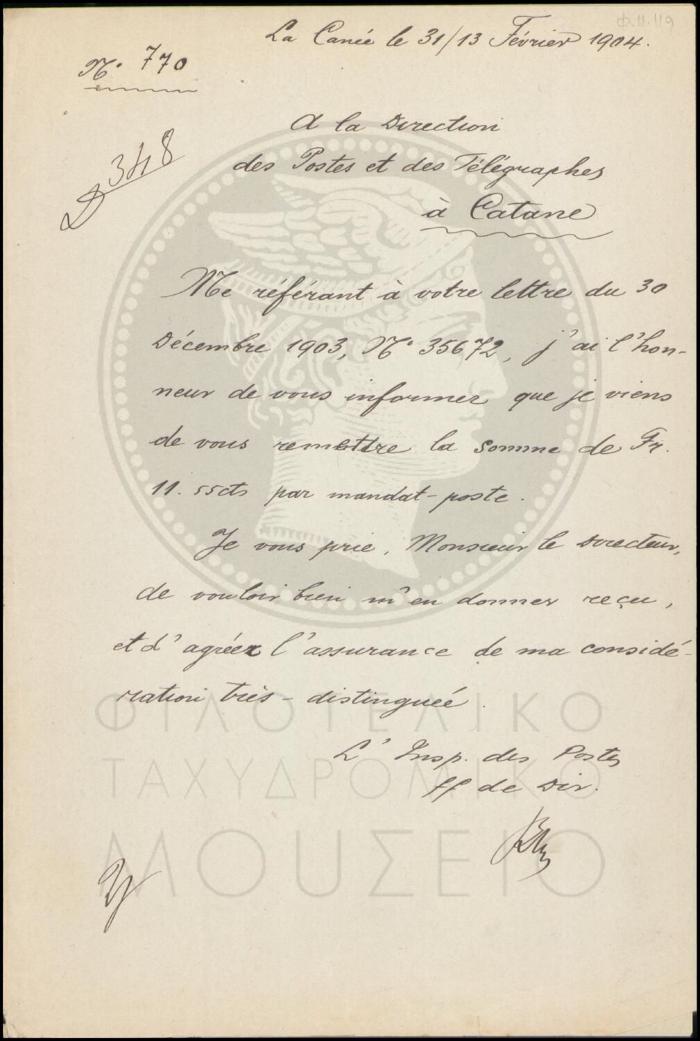 Ф.11.119
La Canée le 31/13 Février 1904.
N° 770
348
A la Direction
des Postes et des Télégraphes
à Catane
Me référant à votre lettre du 30
Décembre 1903, N° 35672, j'ai l'hon-
neur de vous informer que je viens
de vous remettre la somme de Fr.
11.55cts par mandat-poste.
Je vous prie, Monsieur le Directeur,
de vouloir bien m'en donner reçu,
et d'agréer l'assurance de ma considé-
ration très-distinguée.
L'Insp. des Postes
ff de Dir.
ΦΙΛΟΤΕΛΙΚΟ
ΤΑΧΥΔΡΟΜΙΚΟ
ΜΟΥΣΕΙΟ